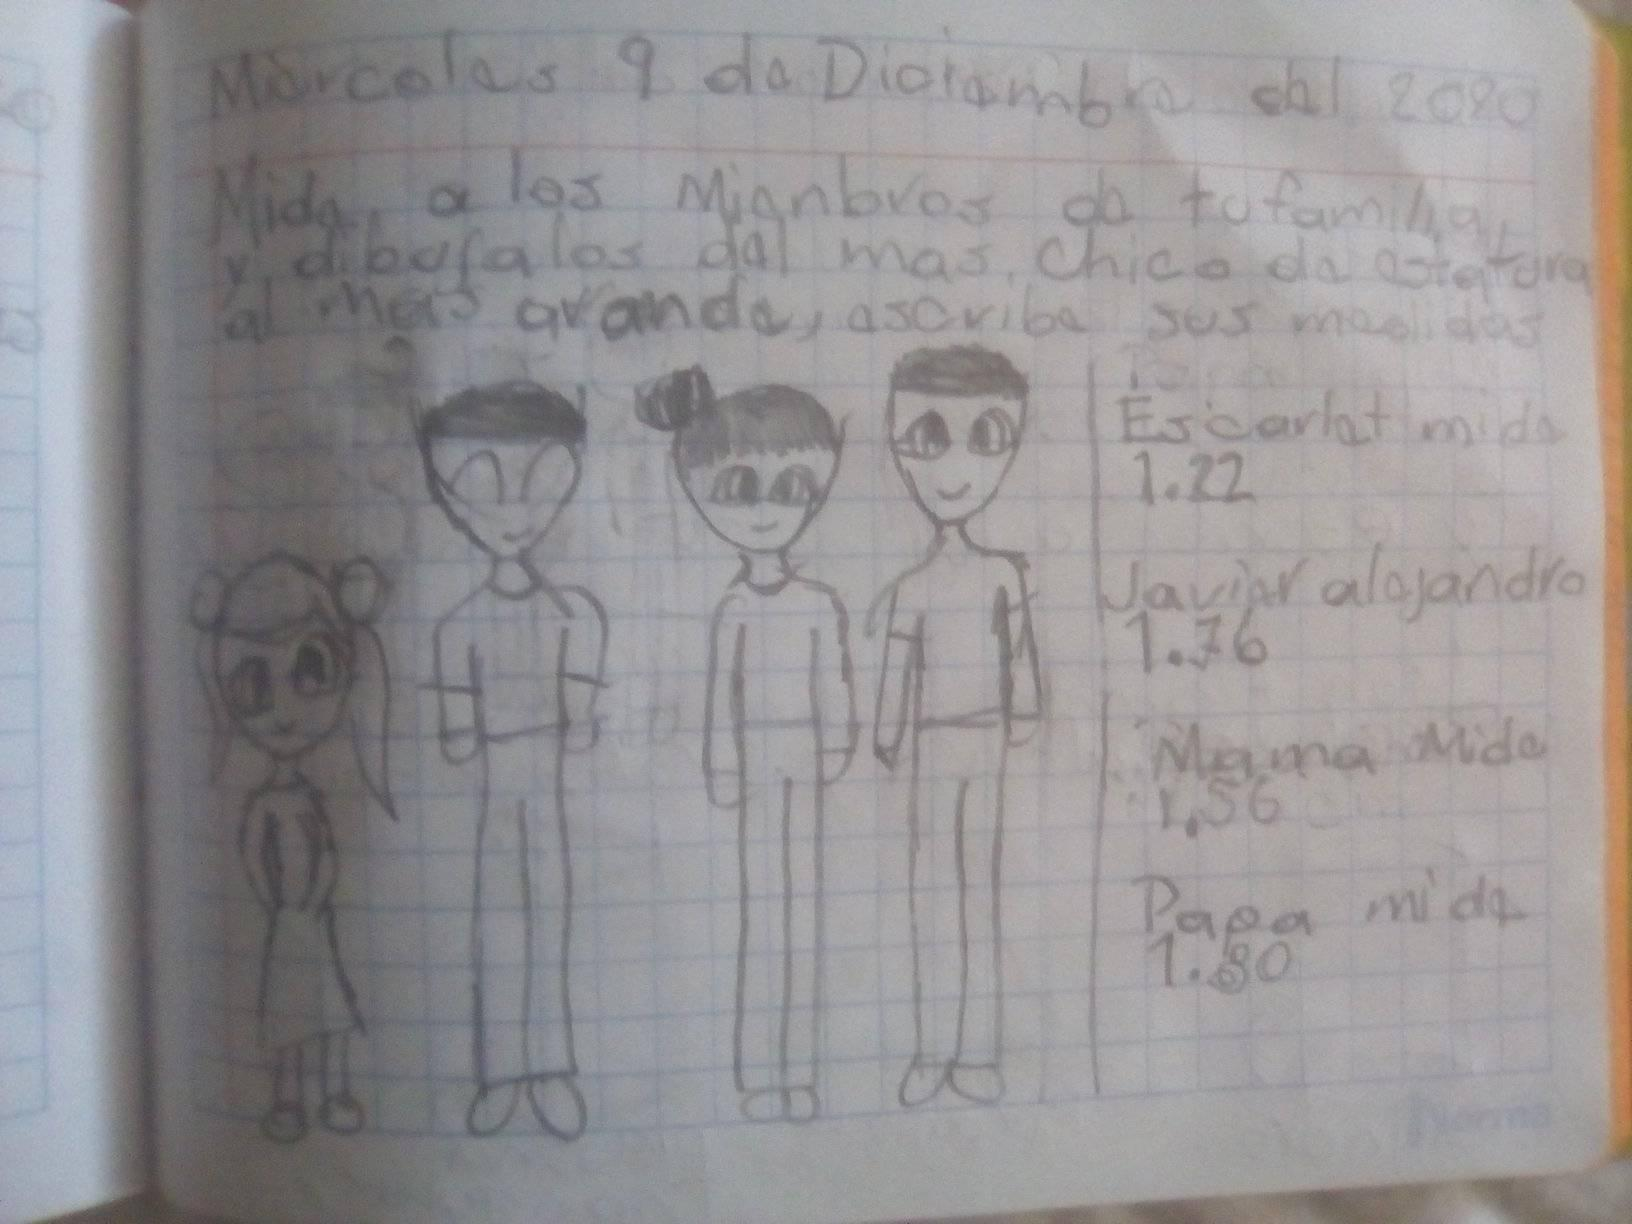 Miércoles 9 de Diciembre del 2020
Mide a los mienbros de tu familia,
y dibujalos del mas chico de estatura
al mas grande, escribe sus medidas
Escarlet mide
1.22
Javier alejandro
1.76
Mama Mide
1.56
Papa mide
1.80
Norma